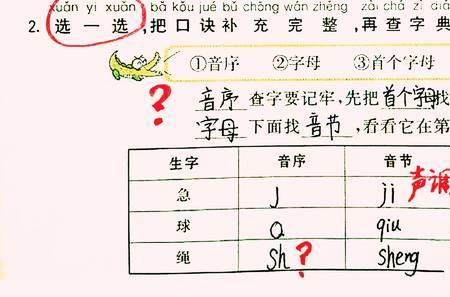 xuǎn yi xuǎn bǎ kǒu jué bǔ chōng wán zhěng zài chá zì diǎ
2.选一选,把口诀补充完整,再查字典
①音序 ②字母 ③首个字母
? 音序 查字要记牢,先把 首个字母 找
字母 下面找 音节 ,看看它在第
生字 音序 音节
急 J jí 声调
球 Q qiu
绳 Sh ? sheng